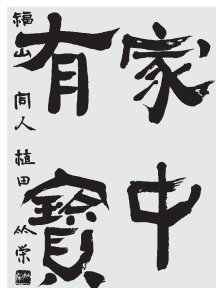 家中
有寶
福山 同人 植田